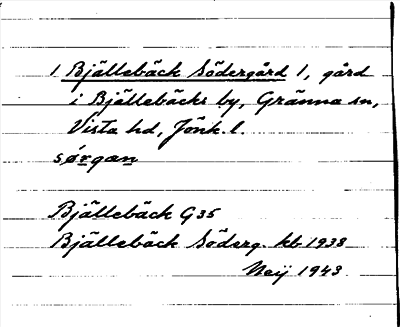 1 Bjällebäck Södergård 1, gård
i Bjällebäcks by, Gränna sn,
Vista hd, Jönk. l.
sørgan
Bjällebäck G35
Bjällebäck Söderg. kb 1938
Neij 1943